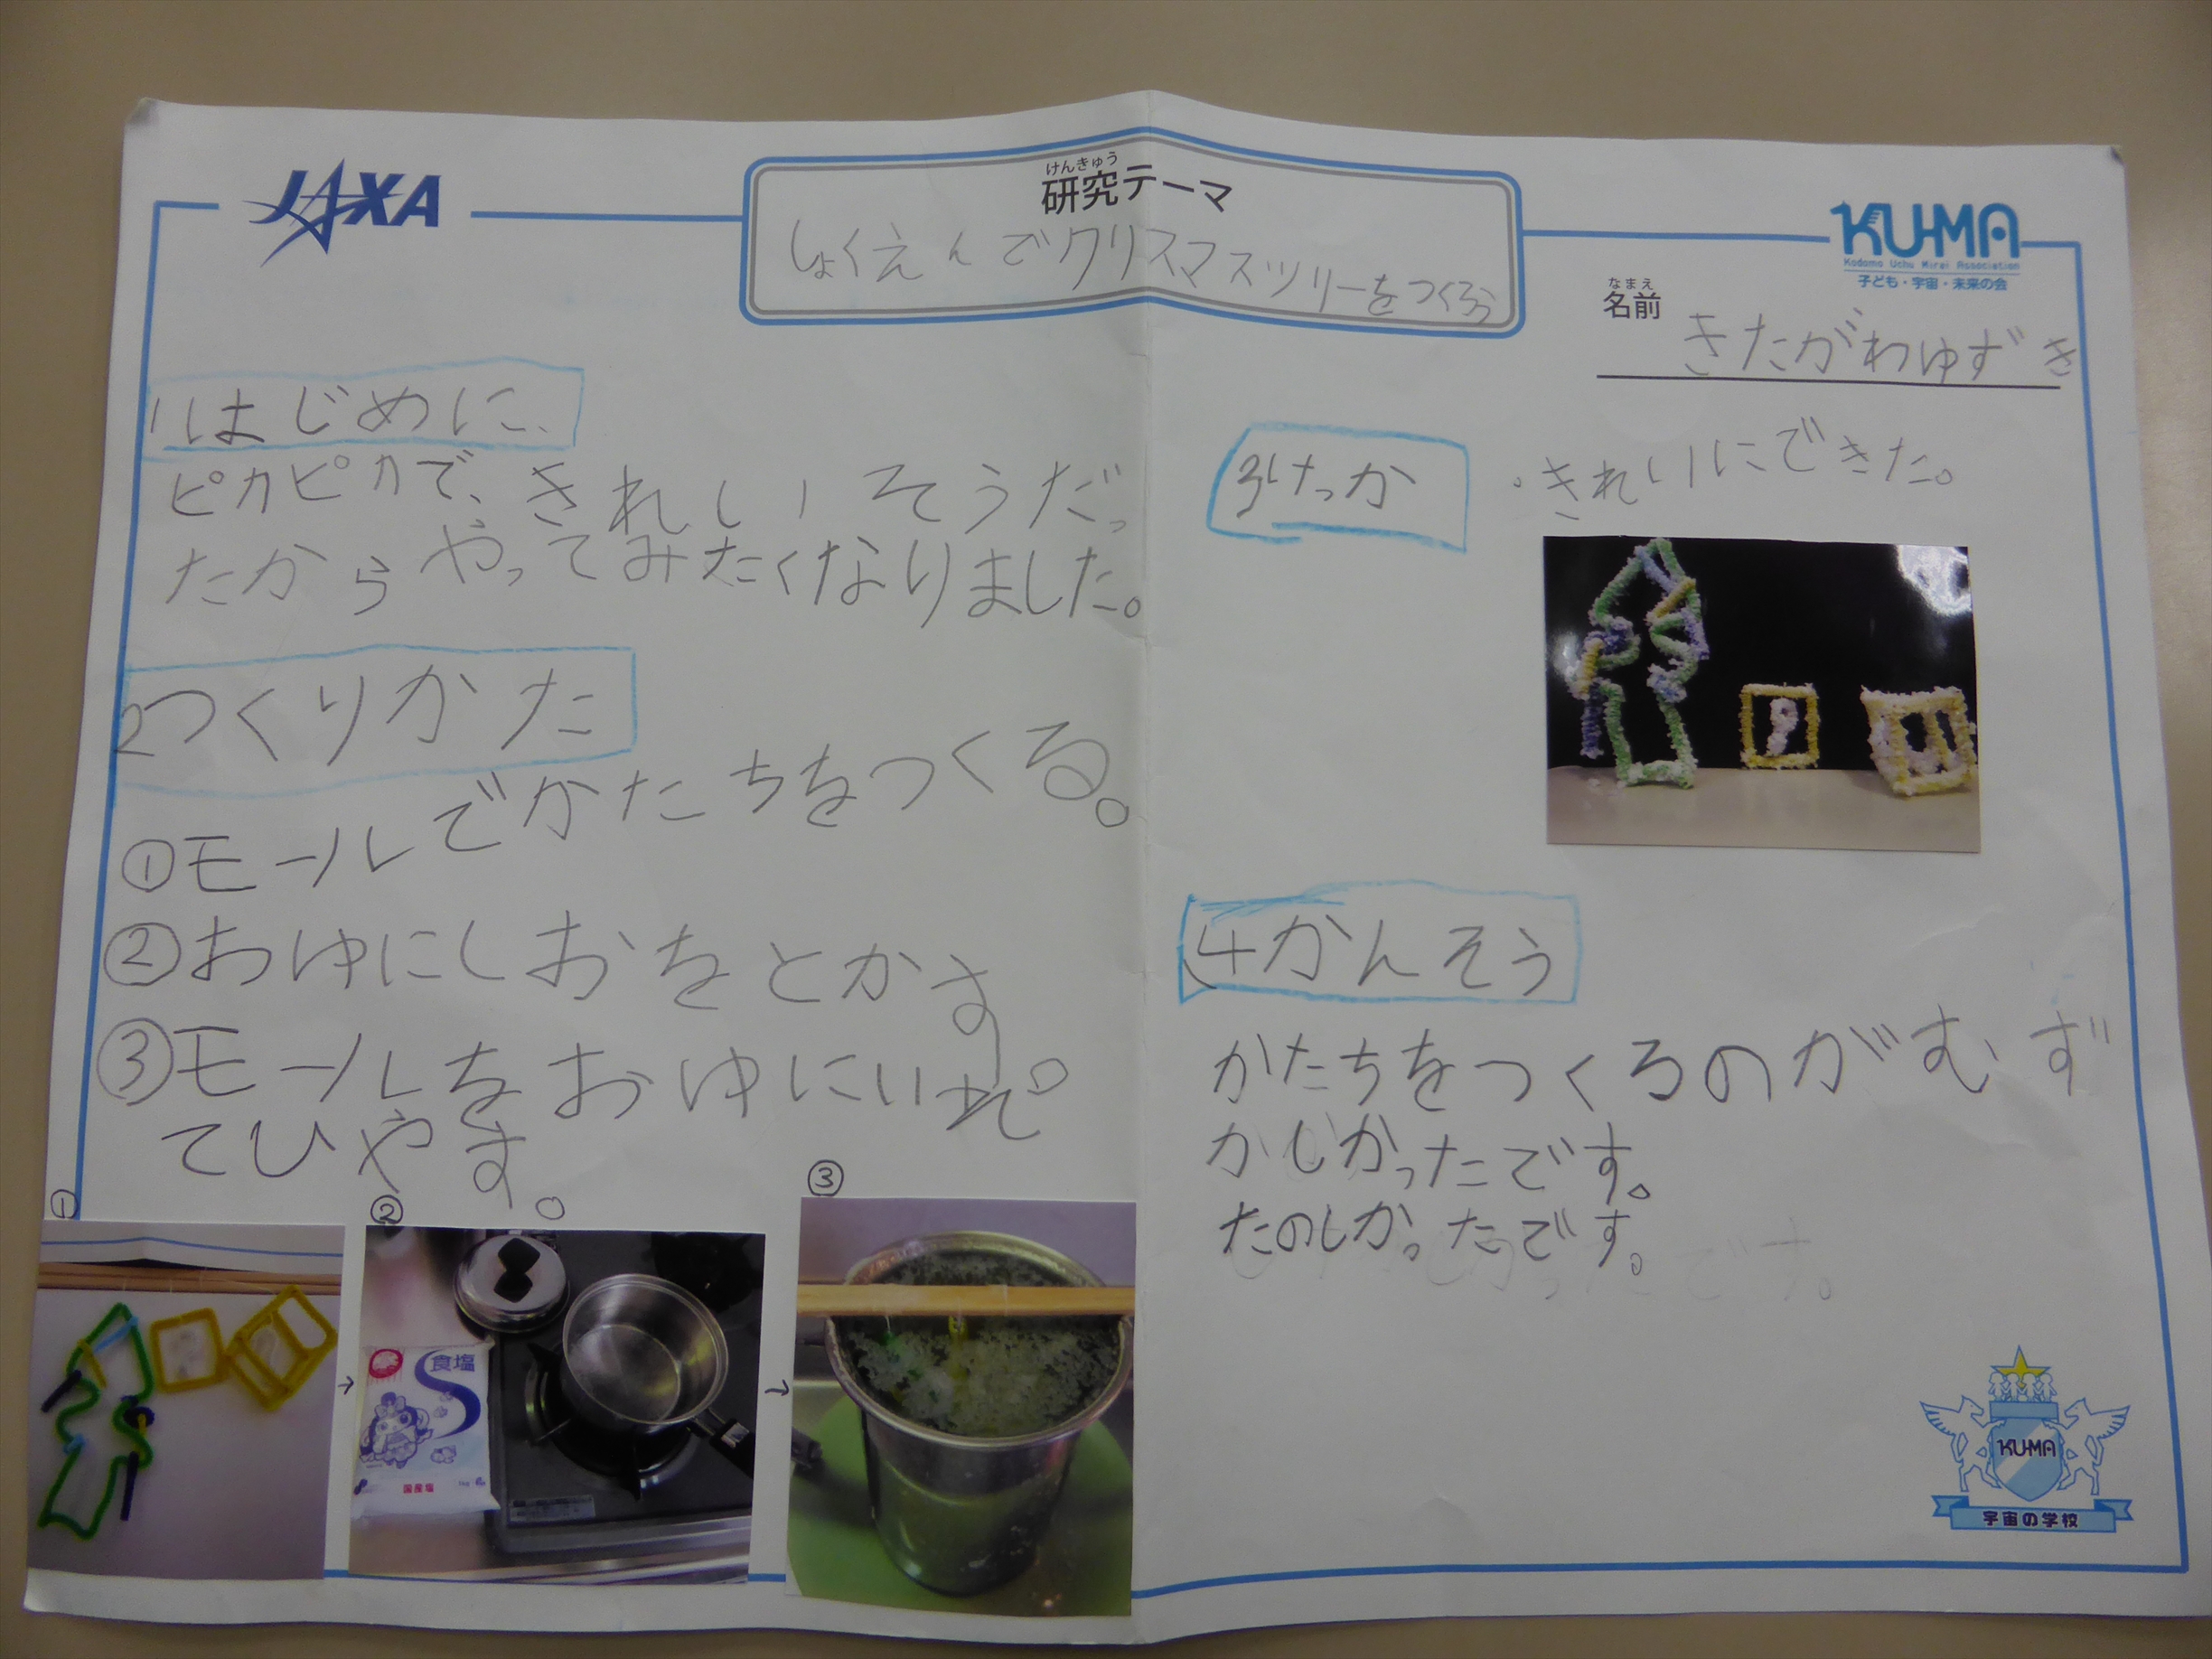 JAXA
けんきゅう
研究テーマ
しょくえんでクリスマスツリーをつくろう
KU-MA
Kodomo Uchu Mirai Association
子ども・宇宙・未来の会
なまえ
名前
きたがわゆずき
1はじめに、
ピカピカで、きれいそうだっ
たからやってみたくなりました。
2つくりかた
①モールでかたちをつくる。
②おゆにしおをとかす。
③モールをおゆにいれ
てひやす。
①
②
③
食塩
国産塩
→
→
3けっか
・きれいにできた。
4かんそう
かたちをつくるのがむず
かしかったです。
たのしかったです。
KU-MA
宇宙の学校